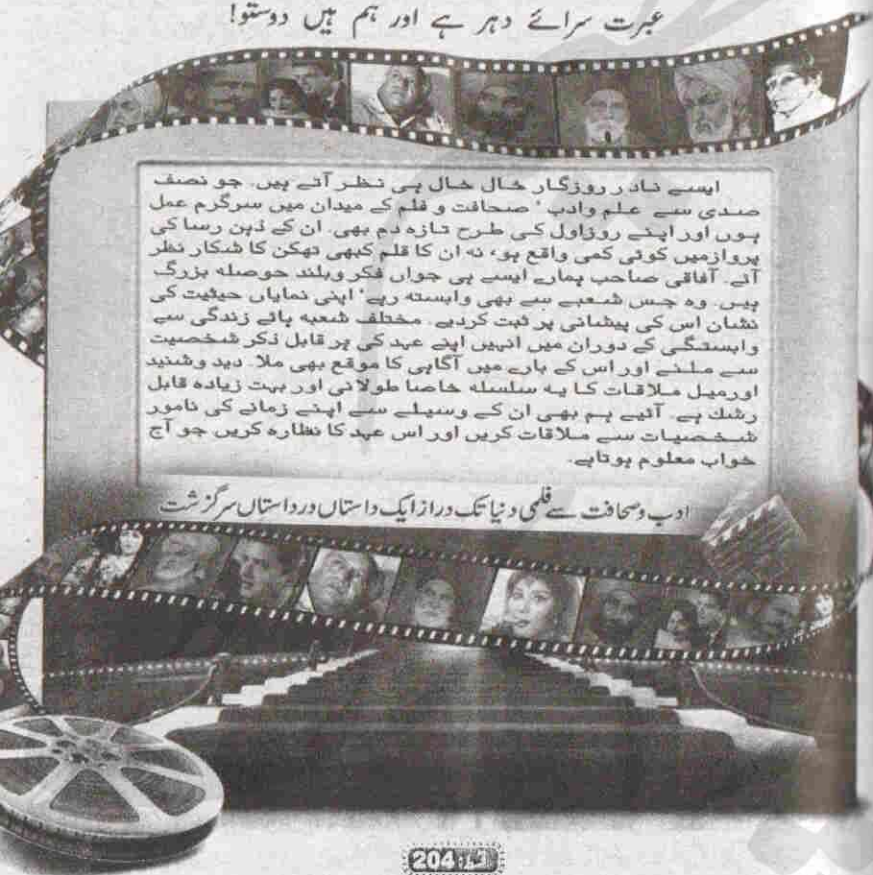 عبرت سرائے دہر ہے اور ہم ہیں دوستو!
ایسے نادر روزگار خال خال ہی نظر آتے ہیں۔ جو نصف
صدی سے علم وادب ‘ صحافت و فلم کے میدان میں سرگرم عمل
ہوں اور اپنے روزاول کی طرح تازہ دم بھی۔ ان کے ذہن رسا کی
پروازمیں کوئی کمی واقع ہو، نہ ان کا قلم کبھی تھکن کا شکار نظر
آئے۔ آفاقی صاحب ہمارے ایسے ہی جواں فکر وبلند حوصلہ بزرگ
ہیں۔ وہ جس شعبے سے بھی وابستہ رہے‘ اپنی نمایاں حیثیت کی
نشان اس کی پیشانی پر ثبت کردیے۔ مختلف شعبہ ہائے زندگی سے
وابستگی کے دوران میں انہیں اپنے عہد کی ہر قابل ذکر شخصیت
سے ملنے اور اس کے بارے میں آگاہی کا موقع بھی ملا۔ دید وشنید
اورمیل ملاقات کا یہ سلسلہ خاصا طولانی اور بہت زیادہ قابل
رشك ہے۔ آئیے ہم بھی ان کے وسیلے سے اپنے زمانے کی نامور
شخصیات سے ملاقات کریں اور اس عہد کا نظارہ کریں جو آج
خواب معلوم ہوتاہے۔
ادب وصحافت سے فلمی دنیا تک دراز ایک داستاں در داستاں سرگزشت
قسط:204